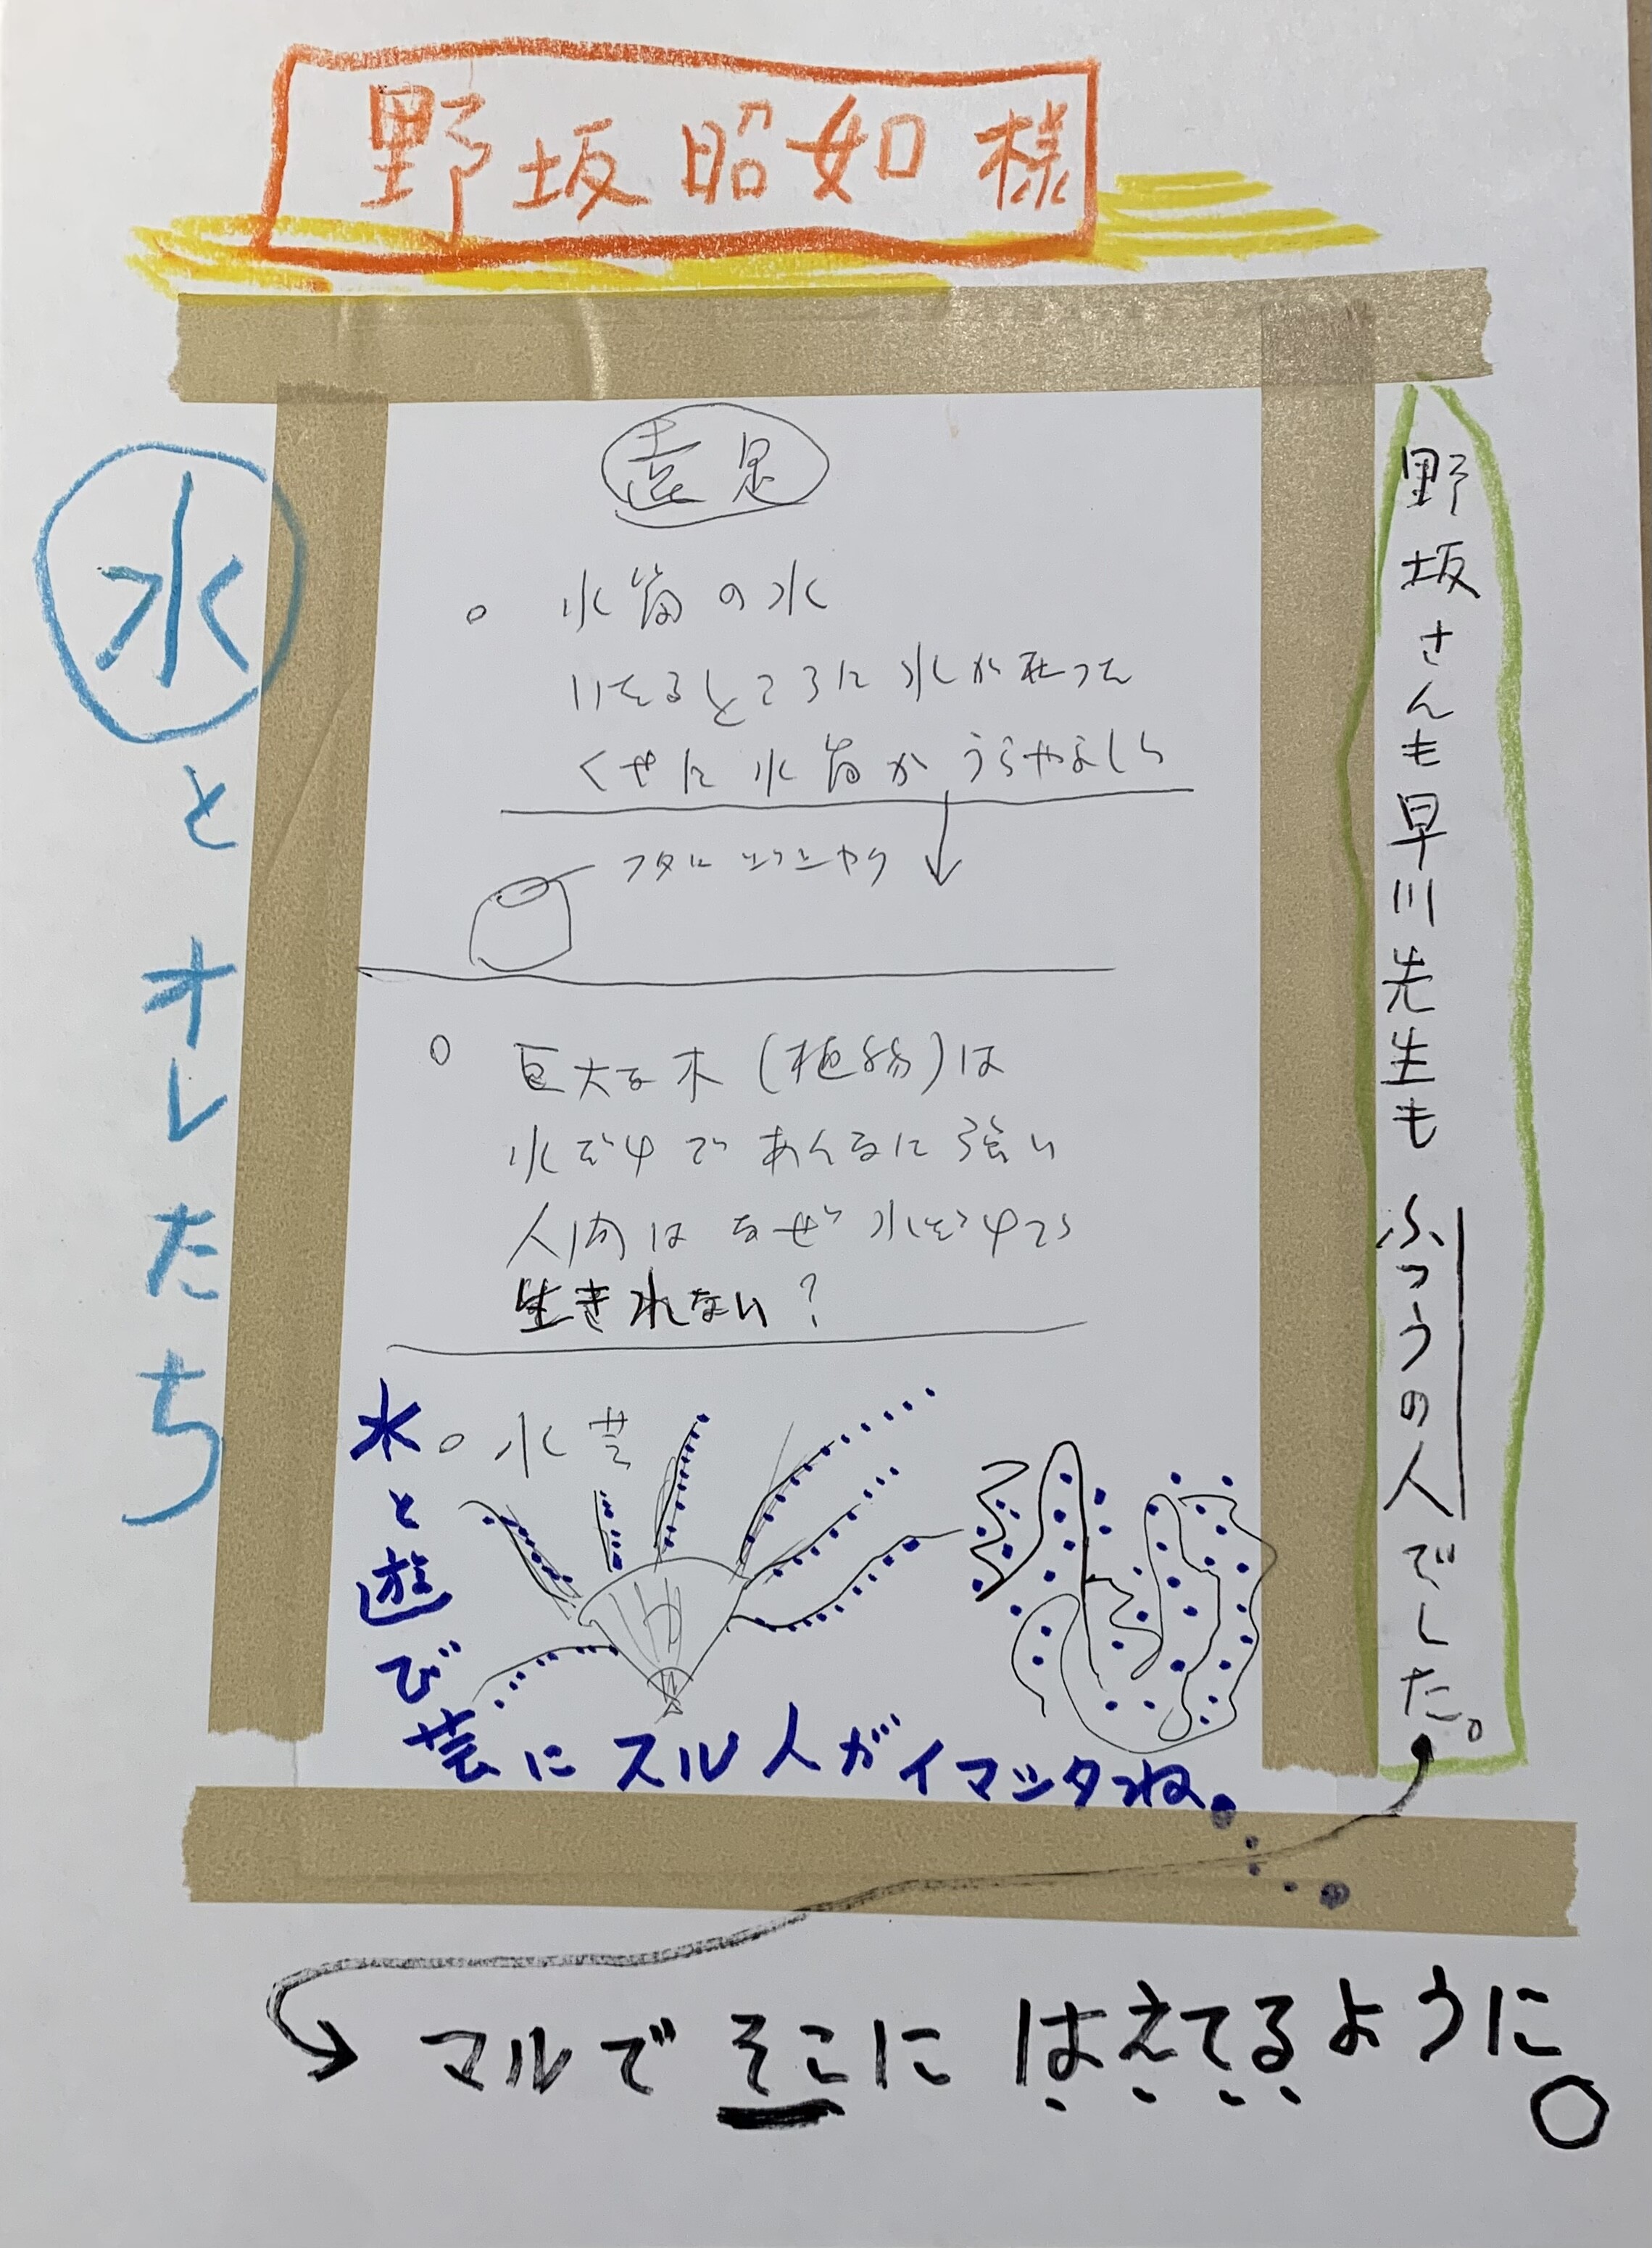 野坂昭如様
水とオレたち
遠足
水筒の水
いたるところに水が在って
くせに水筒がうらやましい
フタに
巨大な木(植物)は
水だけであんなに強い
人間はなぜ水だけで
生きれない?
水芸
水と遊び芸にスル人がイマシタね。
野坂さんも早川先生もふつうの人でした。
マルでそこにはえてるように。